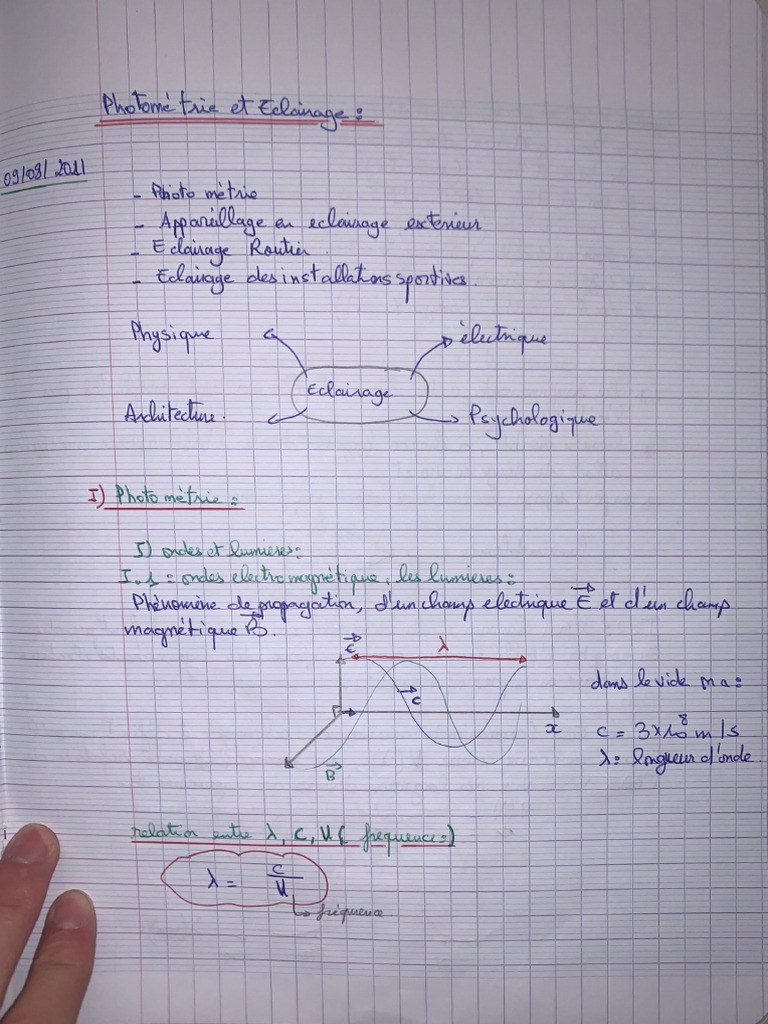 Photométrie et Eclairage :
09/09/2011
- Photo métrie
- Appareillage en eclairage exterieur
- Eclairage Routier.
- Eclairage des installations sportives.
Physique
électrique
Eclairage
Architecture.
Psychologique
I) Photo métrie :
I) ondes et lumieres:
I.1 : ondes electro magnétique, les lumieres :
Phénomène de propagation, d'un champ electrique E et d'un champ
magnétique B.
E
λ
C
x
B
dans le vide
C = 3x10⁸ m/s
λ= longueur d'onde.
relation entre λ, C, U ( frequence=)
λ = C/U
fréquence